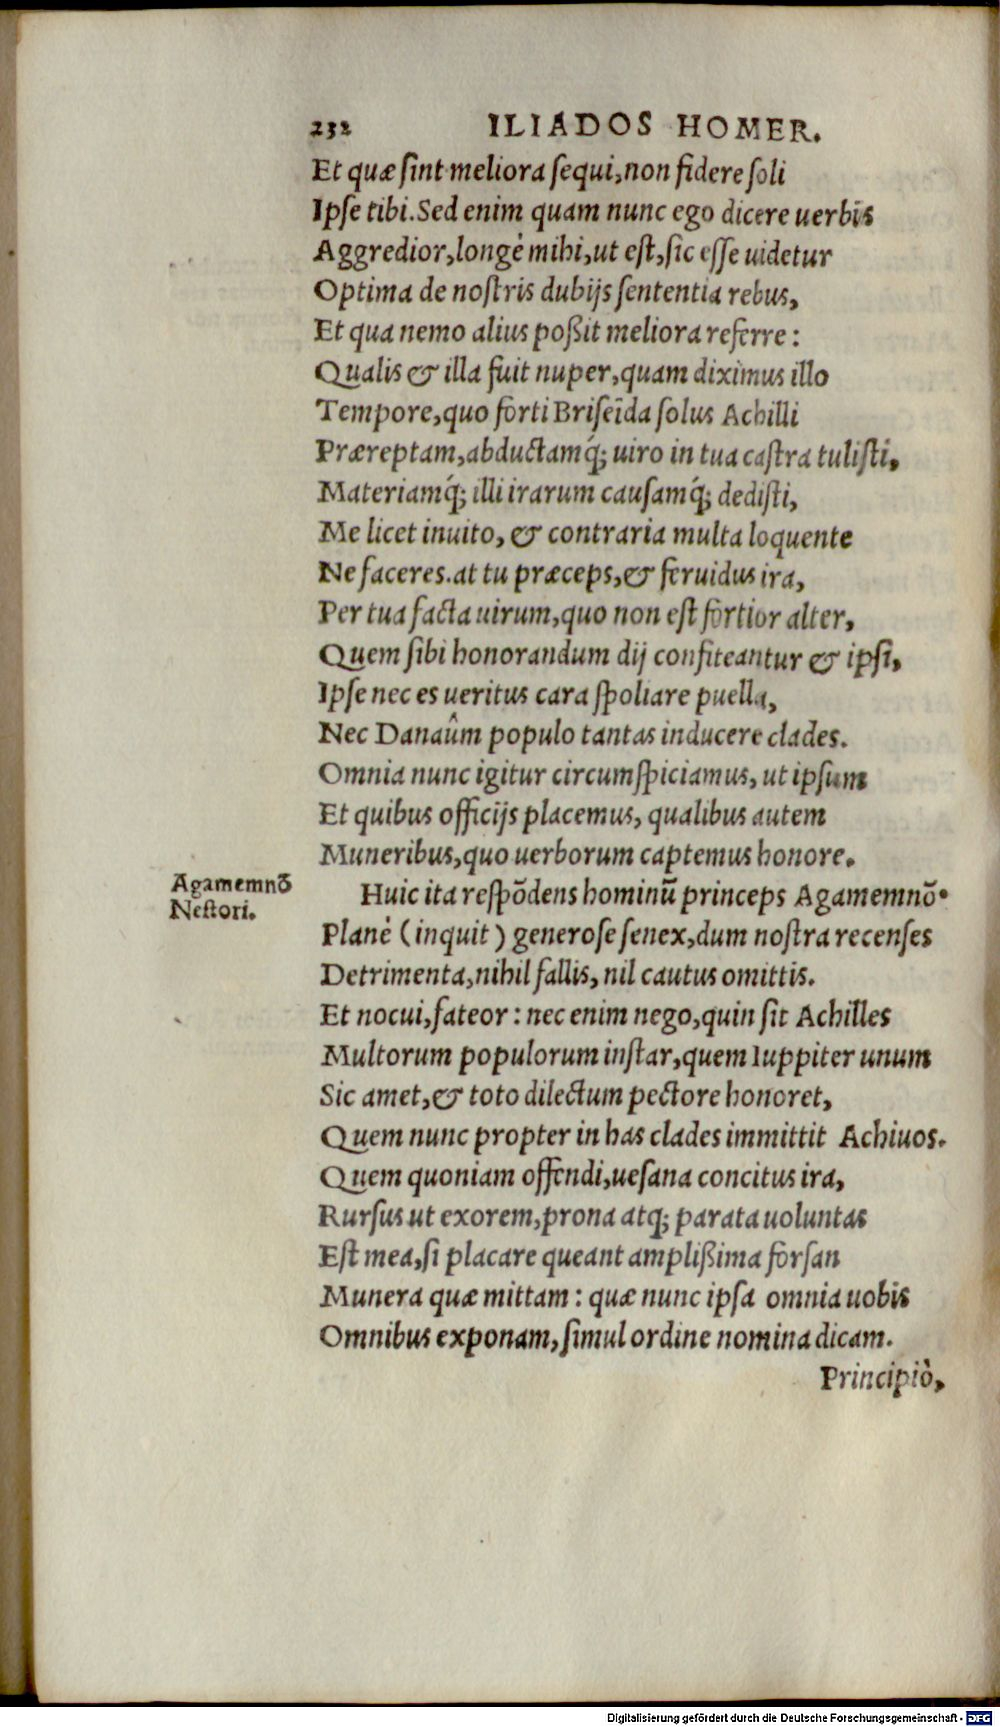 232 ILIADOS HOMER.
Et quæ ſint meliora ſequi, non fidere ſoli
Ipſe tibi. Sed enim quam nunc ego dicere uerbis
Aggredior, longè mihi, ut eſt, ſic eſſe uidetur
Optima de noſtris dubijs ſententia rebus,
Et qua nemo alius poßit meliora referre:
Qualis & illa fuit nuper, quam diximus illo
Tempore, quo forti Briſeīda ſolus Achilli
Præreptam, abductamq́; uiro in tua caſtra tuliſti,
Materiamq́; illi irarum cauſamq́; dediſti,
Me licet inuito, & contraria multa loquente
Ne faceres. at tu præceps, & feruidus ira,
Per tua facta uirum, quo non eſt fortior alter,
Quem ſibi honorandum dij confiteantur & ipſi,
Ipſe nec es ueritus cara ſpoliare puella,
Nec Danaûm populo tantas inducere clades.
Omnia nunc igitur circumſpiciamus, ut ipſum
Et quibus officijs placemus, qualibus autem
Muneribus, quo uerborum captemus honore.
Agamemnō
Neſtori.
Huic ita reſpōdens hominū princeps Agamemnō.
Planè (inquit) generoſe ſenex, dum noſtra recenſes
Detrimenta, nihil fallis, nil cautus omittis.
Et nocui, fateor: nec enim nego, quin ſit Achilles
Multorum populorum inſtar, quem Iuppiter unum
Sic amet, & toto dilectum pectore honoret,
Quem nunc propter in has clades immittit Achiuos.
Quem quoniam offendi, ueſana concitus ira,
Rurſus ut exorem, prona atq; parata uoluntas
Eſt mea, ſi placare queant amplißima forſan
Munera quæ mittam: quæ nunc ipſa omnia uobis
Omnibus exponam, ſimul ordine nomina dicam.
Principiò,
Digitalisierung gefördert durch die Deutsche Forschungsgemeinschaft - DFG